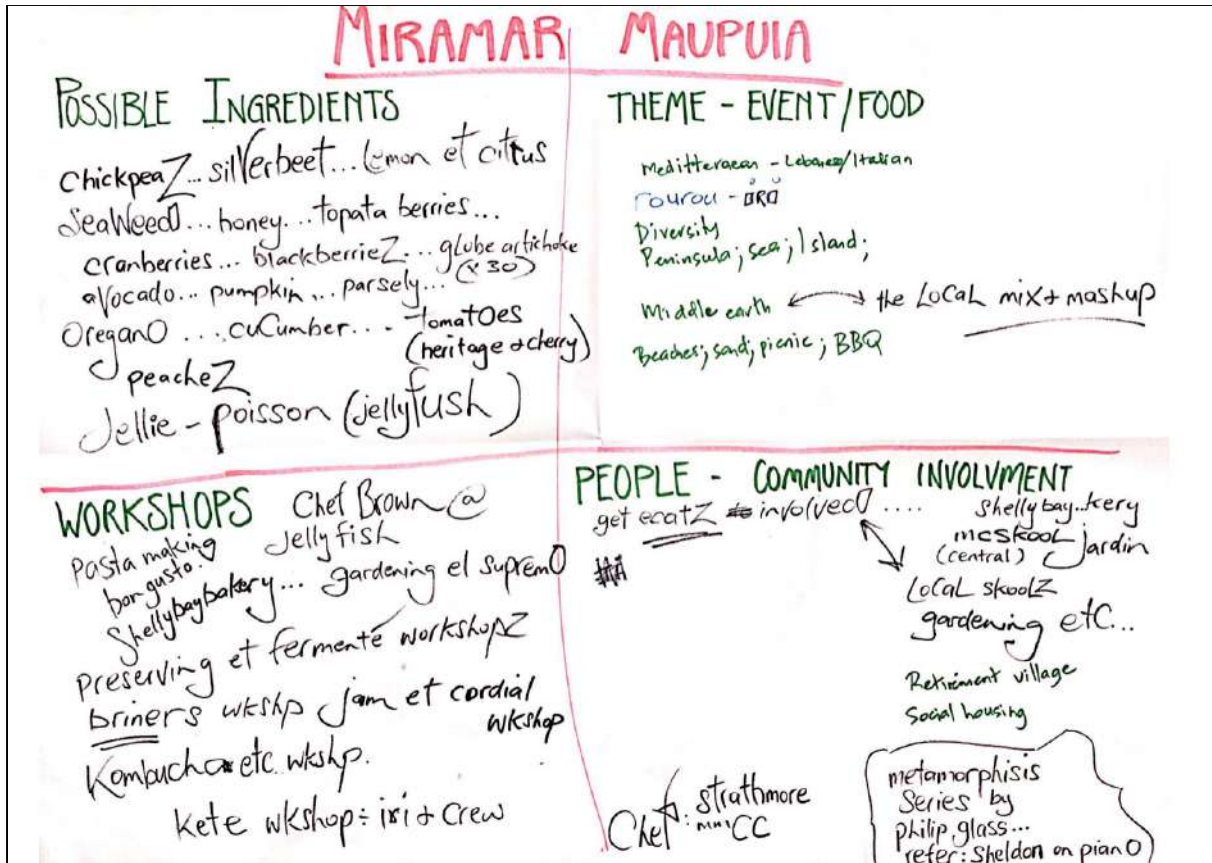 MIRAMAR MAUPUIA
POSSIBLE INGREDIENTS
chickpeaZ... silverbeet... lemon et citrus
SeaWeeD... honey... topata berries...
cranberries... blackberrieZ... globe artichoke
(x 30)
avocado... pumpkin... parsely...
OreganO .... cuCumber.... tomatOes
(heritage + cherry)
peacheZ
Jellie - poisson (jellyfush)
THEME - EVENT/FOOD
Meditteraean - Lebanese/Italian
rourou -
Diversity
Peninsula; sea; Island;
Middle earth the LoCaL mix + mashup
Beaches; sand; picnic; BBQ
WORKSHOPS
Chef Brown @
Jellyfish
Pasta making
bon gusto.
Shellybaybakery... gardening el supremO
preserving et fermenté workshopZ
briners wkshp jam et cordial
wkshop
Kombucha etc wkshp.
Kete wkshop: iri + crew
PEOPLE - COMMUNITY INVOLVMENT
get ecatZ involveD ....
Shellybay..kery
mcskool jardin
(central)
LoCaL skoolZ
gardening etc...
Retirement village
Social housing
Chef: strathmore
CC
metamorphisis
Series by
philip glass...
refer: Sheldon on pianO